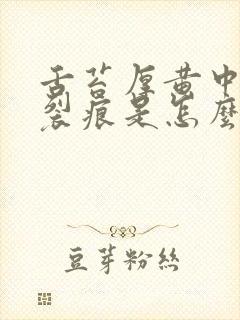 舌苔厚黄中
裂痕是怎麼
豆芽粉絲